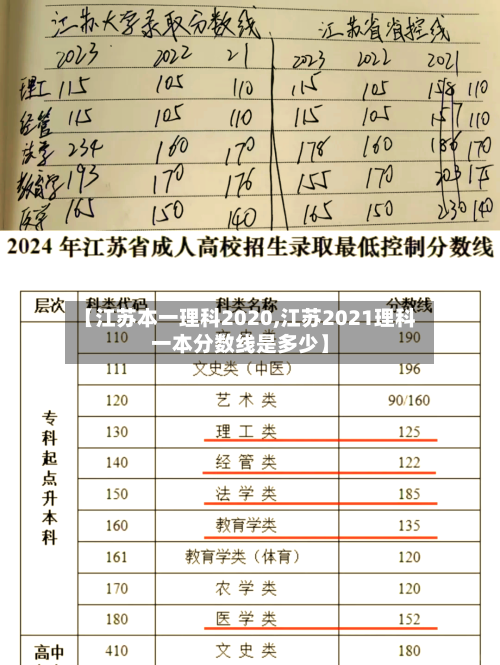 江苏大学录取分数线 江苏省省控线
2023 2022 21 2023 2022 2021
理工 115 105 110 115 105 110
经管 115 105 110 115 105 110
法学 234 160 170 178 160 170
教育学 193 170 176 155 170 175
医学 165 150 140 165 150 140
2024 年江苏省成人高校招生录取最低控制分数线
层次 科类代码 科类名称 分数线
【江苏本一理科2020,江苏2021理科
一本分数线是多少】
110 文 史 类 190
111 文史类（中医） 196
120 艺 术 类 90/160
130 理 工 类 125
140 经 管 类 122
150 法 学 类 185
160 教育学类 135
161 教育学类（体育） 120
170 农 学 类 120
180 医 学 类 152
专科起点升本科
高中 410 文 史 类 180